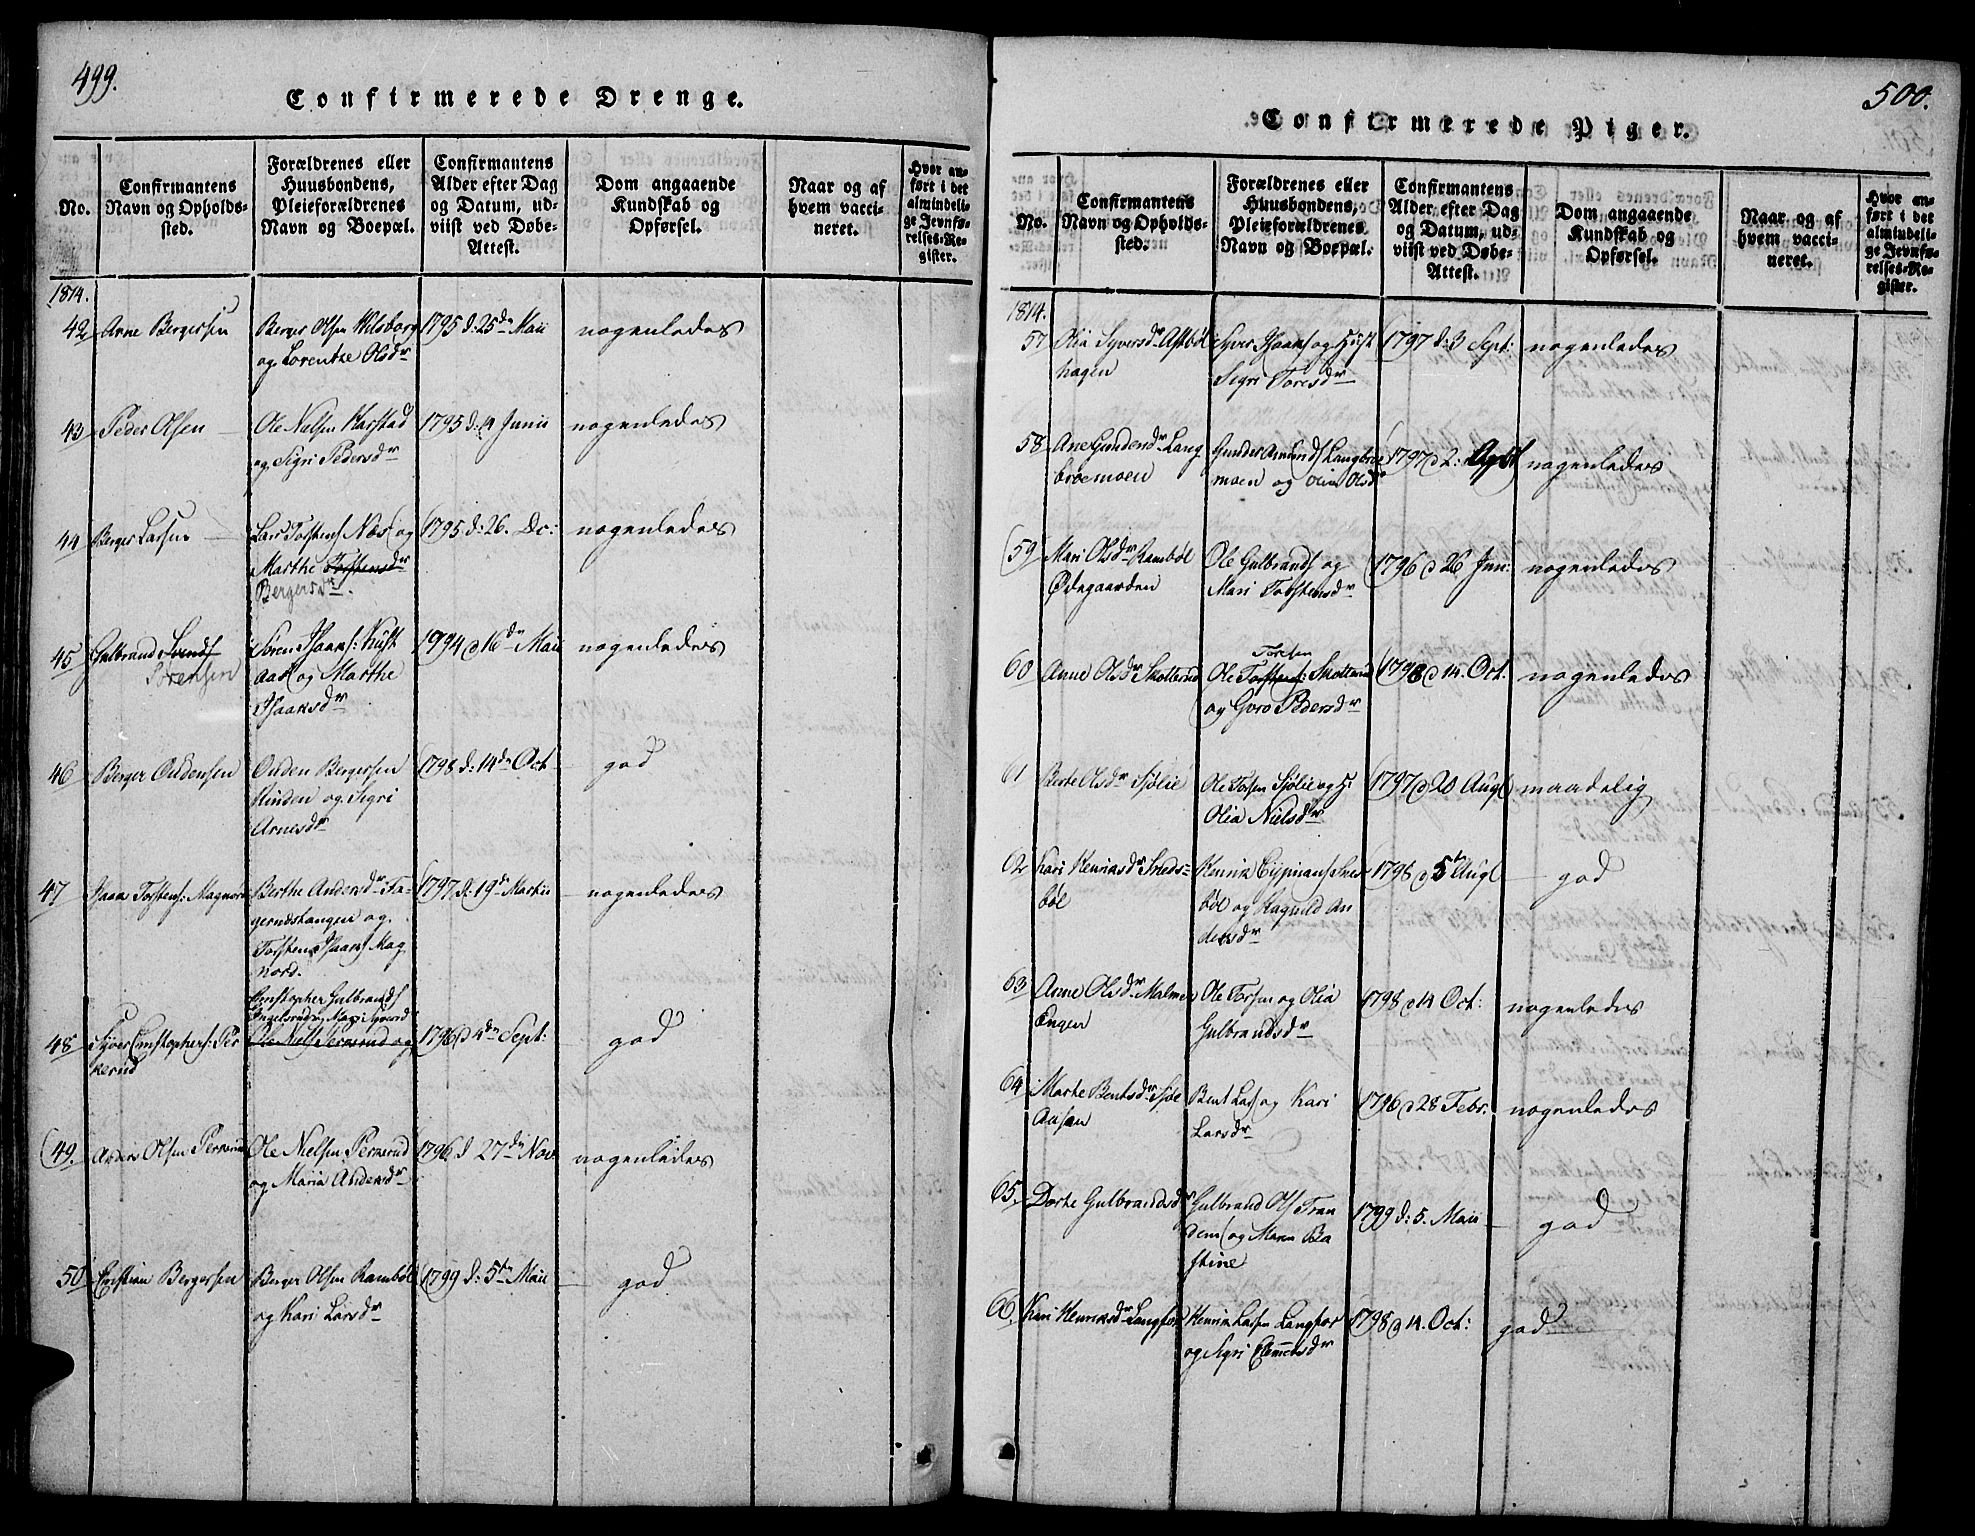 499.
Confirmerede Drenge.
No.
Confirmantens
Navn og Opholds-
sted.
Forældrenes eller
Huusbondens,
Pleieforældrenes
Navn og Boepæl.
Confirmantens
Alder efter Dag
og Datum, ud-
viist ved Døbe-
Attest.
Dom angaaende
Kundskab og
Opførsel.
Naar og af
hvem vacci-
neret.
Hvor an-
ført i det
almindeli-
ge Jevnfø-
relses-Re-
gister.
1814.
42 Arne Bergersen
Berger Olsen Wilsborg
og Lorentze Olsdr
1795 d: 25de Maii
nogenledes
43 Peder Olsen
Ole Nielsen Harstad
og Sigri Pedersdr
1795 d: 14 Junii
nogenledes
44 Berger Larsen
Lars Torstens Næs og
Marthe Torstensdr
Bergersdr.
1795 d: 26. Dc:
nogenledes
45 Gulbrand Svends
Sørensen
Søren Isaaks:
og Marthe
Isaaksdr
1794 d 16de Maii
nogenledes
46 Berger Oudensen
Ouden Bergersen
Rinden og Sigri
Arnesdr
1798 d: 14de Oct
god
47 Isaak Torstens: Magnord
Berthe Andersdr Fa-
gerndstangen og
Torsten Isaaks Mag
nord.
1797. d: 19de Martii
nogenledes
48 Syver Cristophers: Per
kerud
Cristopher Gulbrands
og Mari Syversd
Ole Niels Perkerud og
1796 d 4de Sept:
god
49. Anders Olsen Perkerud
Ole Nielsen Perkerud
og Maria Andersdr
1796 d 27de Nov
nogenledes
50 Cristian Bergersen
Berger Olsen Rambøl
og Kari Larsdr
1799 d: 5te Maii
god
500.
Confirmerede Piger.
No.
Confirmantens
Navn og Opholds-
sted.
Forældrenes eller
Huusbondens,
Pleieforældrenes
Navn og Boepæl.
Confirmantens
Alder efter Dag
og Datum, ud-
viist ved Døbe-
Attest.
Dom angaaende
Kundskab og
Opførsel.
Naar og af
hvem vacci-
neret.
Hvor an-
ført i det
almindeli-
ge Jevnfø-
relses-Re-
gister.
1814.
57 Olia Syversdr Astbøl
hagen
Syver Isaaks og
Sigri Toresdr
1797 d: 3 Sept:
nogenledes
58 Ane Gundersdr Lang
broemoen
Gunder Amunds Langbroe
moen og Olia Olsdr
1797 d 2: Agst
nogenledes
59 Mari Olsdr Rambøl
Ødegaarden
Ole Gulbrands og
Mari Torstensdr
1796 d 26 Jun:
nogenledes
60 Anne Olsdr Skotterud
Toresen
Ole Torstens: Skotterud
og Goro Pedersdr
1798 d 14. Oct.
nogenledes
61 Berte Olsdr Sjølie
Ole Torsen Sjølie og
Olia Nielsdr
1797 d 20 Aug
maadelig
62 Kari Henriksdr Sneds-
bøl
Henrik Cyprians Sneds
bøl og Ragnild An
dersdr
1798 d 5te Aug
god
63 Anne Olsdr Malmer
Engen
Ole Torsen og Olia
Gulbrandsdr
1798 d 14 Oct:
nogenledes
64 Marte Bentsdr Sjøe
Aasen
Bent Lars og Kari
Larsdr
1796 d 28 Febr.
nogenledes
65. Dorte Gulbrandsdr
Gulbrand Ols Tran
dem og Maren Ba
stine
1799 d: 5. Maii
god
66. Kari Henriksdr Langfor
Henrik Larsen Langfor
og Sigri Clemmetsdr
1798 d 14. Oct:
god